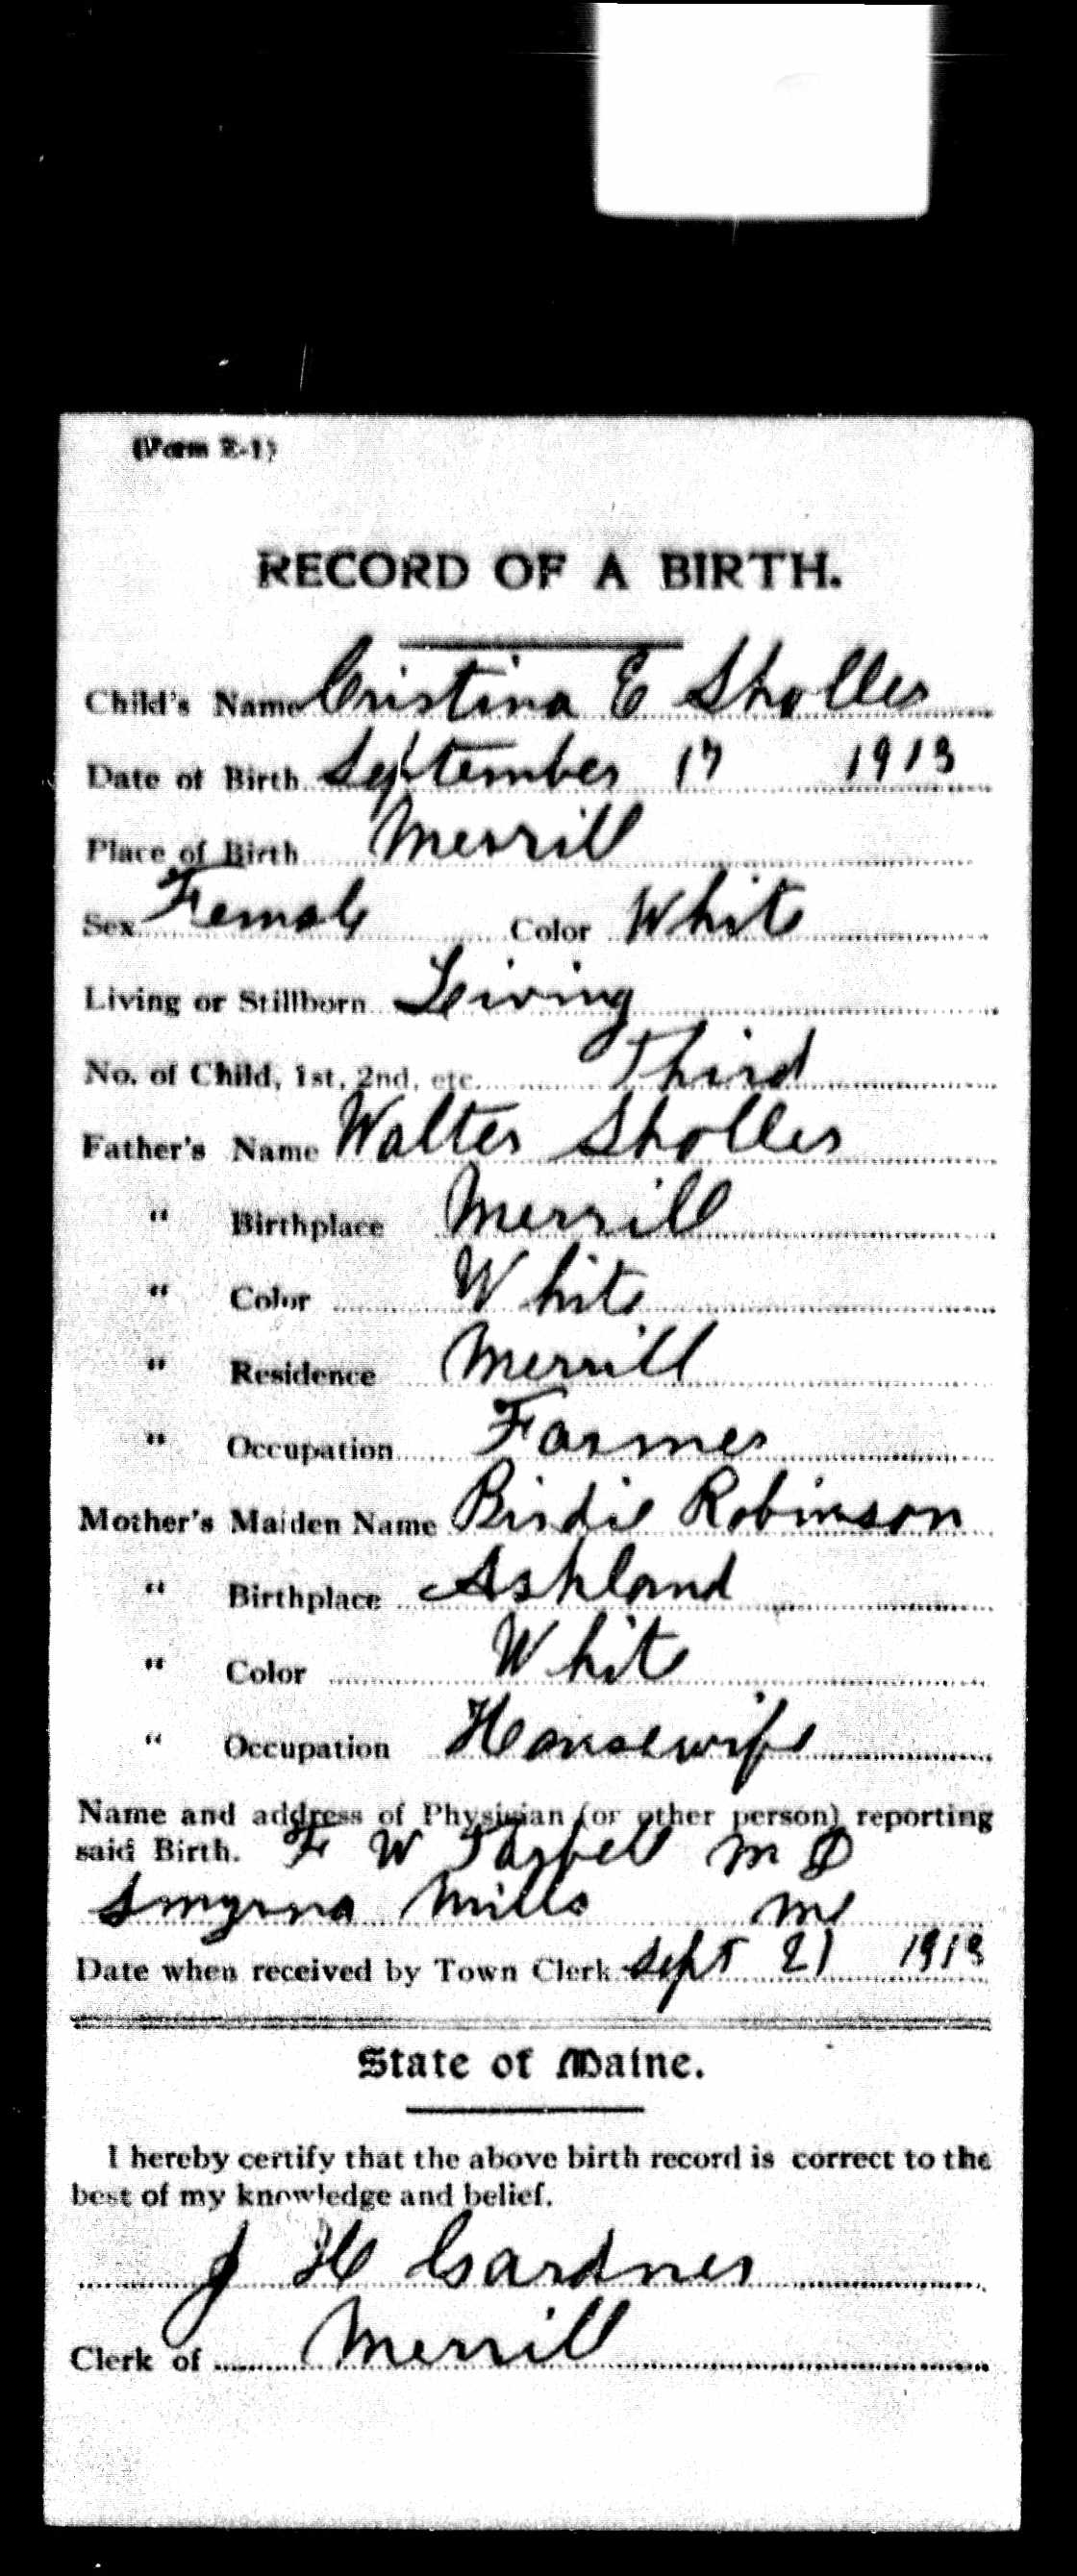 (Form E-1)
RECORD OF A BIRTH.
Child's Name Cristina E Sholler
Date of Birth September 17 1913
Place of Birth Merrill
Sex Female Color White
Living or Stillborn Living
No. of Child, 1st, 2nd, etc. Third
Father's Name Walter Sholler
" Birthplace Merrill
" Color White
" Residence Merrill
" Occupation Farmer
Mother's Maiden Name Birdie Robinson
" Birthplace Ashland
" Color White
" Occupation Housewife
Name and address of Physician (or other person) reporting
said Birth. F W Tarbell M D
Smyrna Mills Me
Date when received by Town Clerk Sept 21 1913
State of Maine.
I hereby certify that the above birth record is correct to the
best of my knowledge and belief.
J H Gardner
Clerk of Merrill